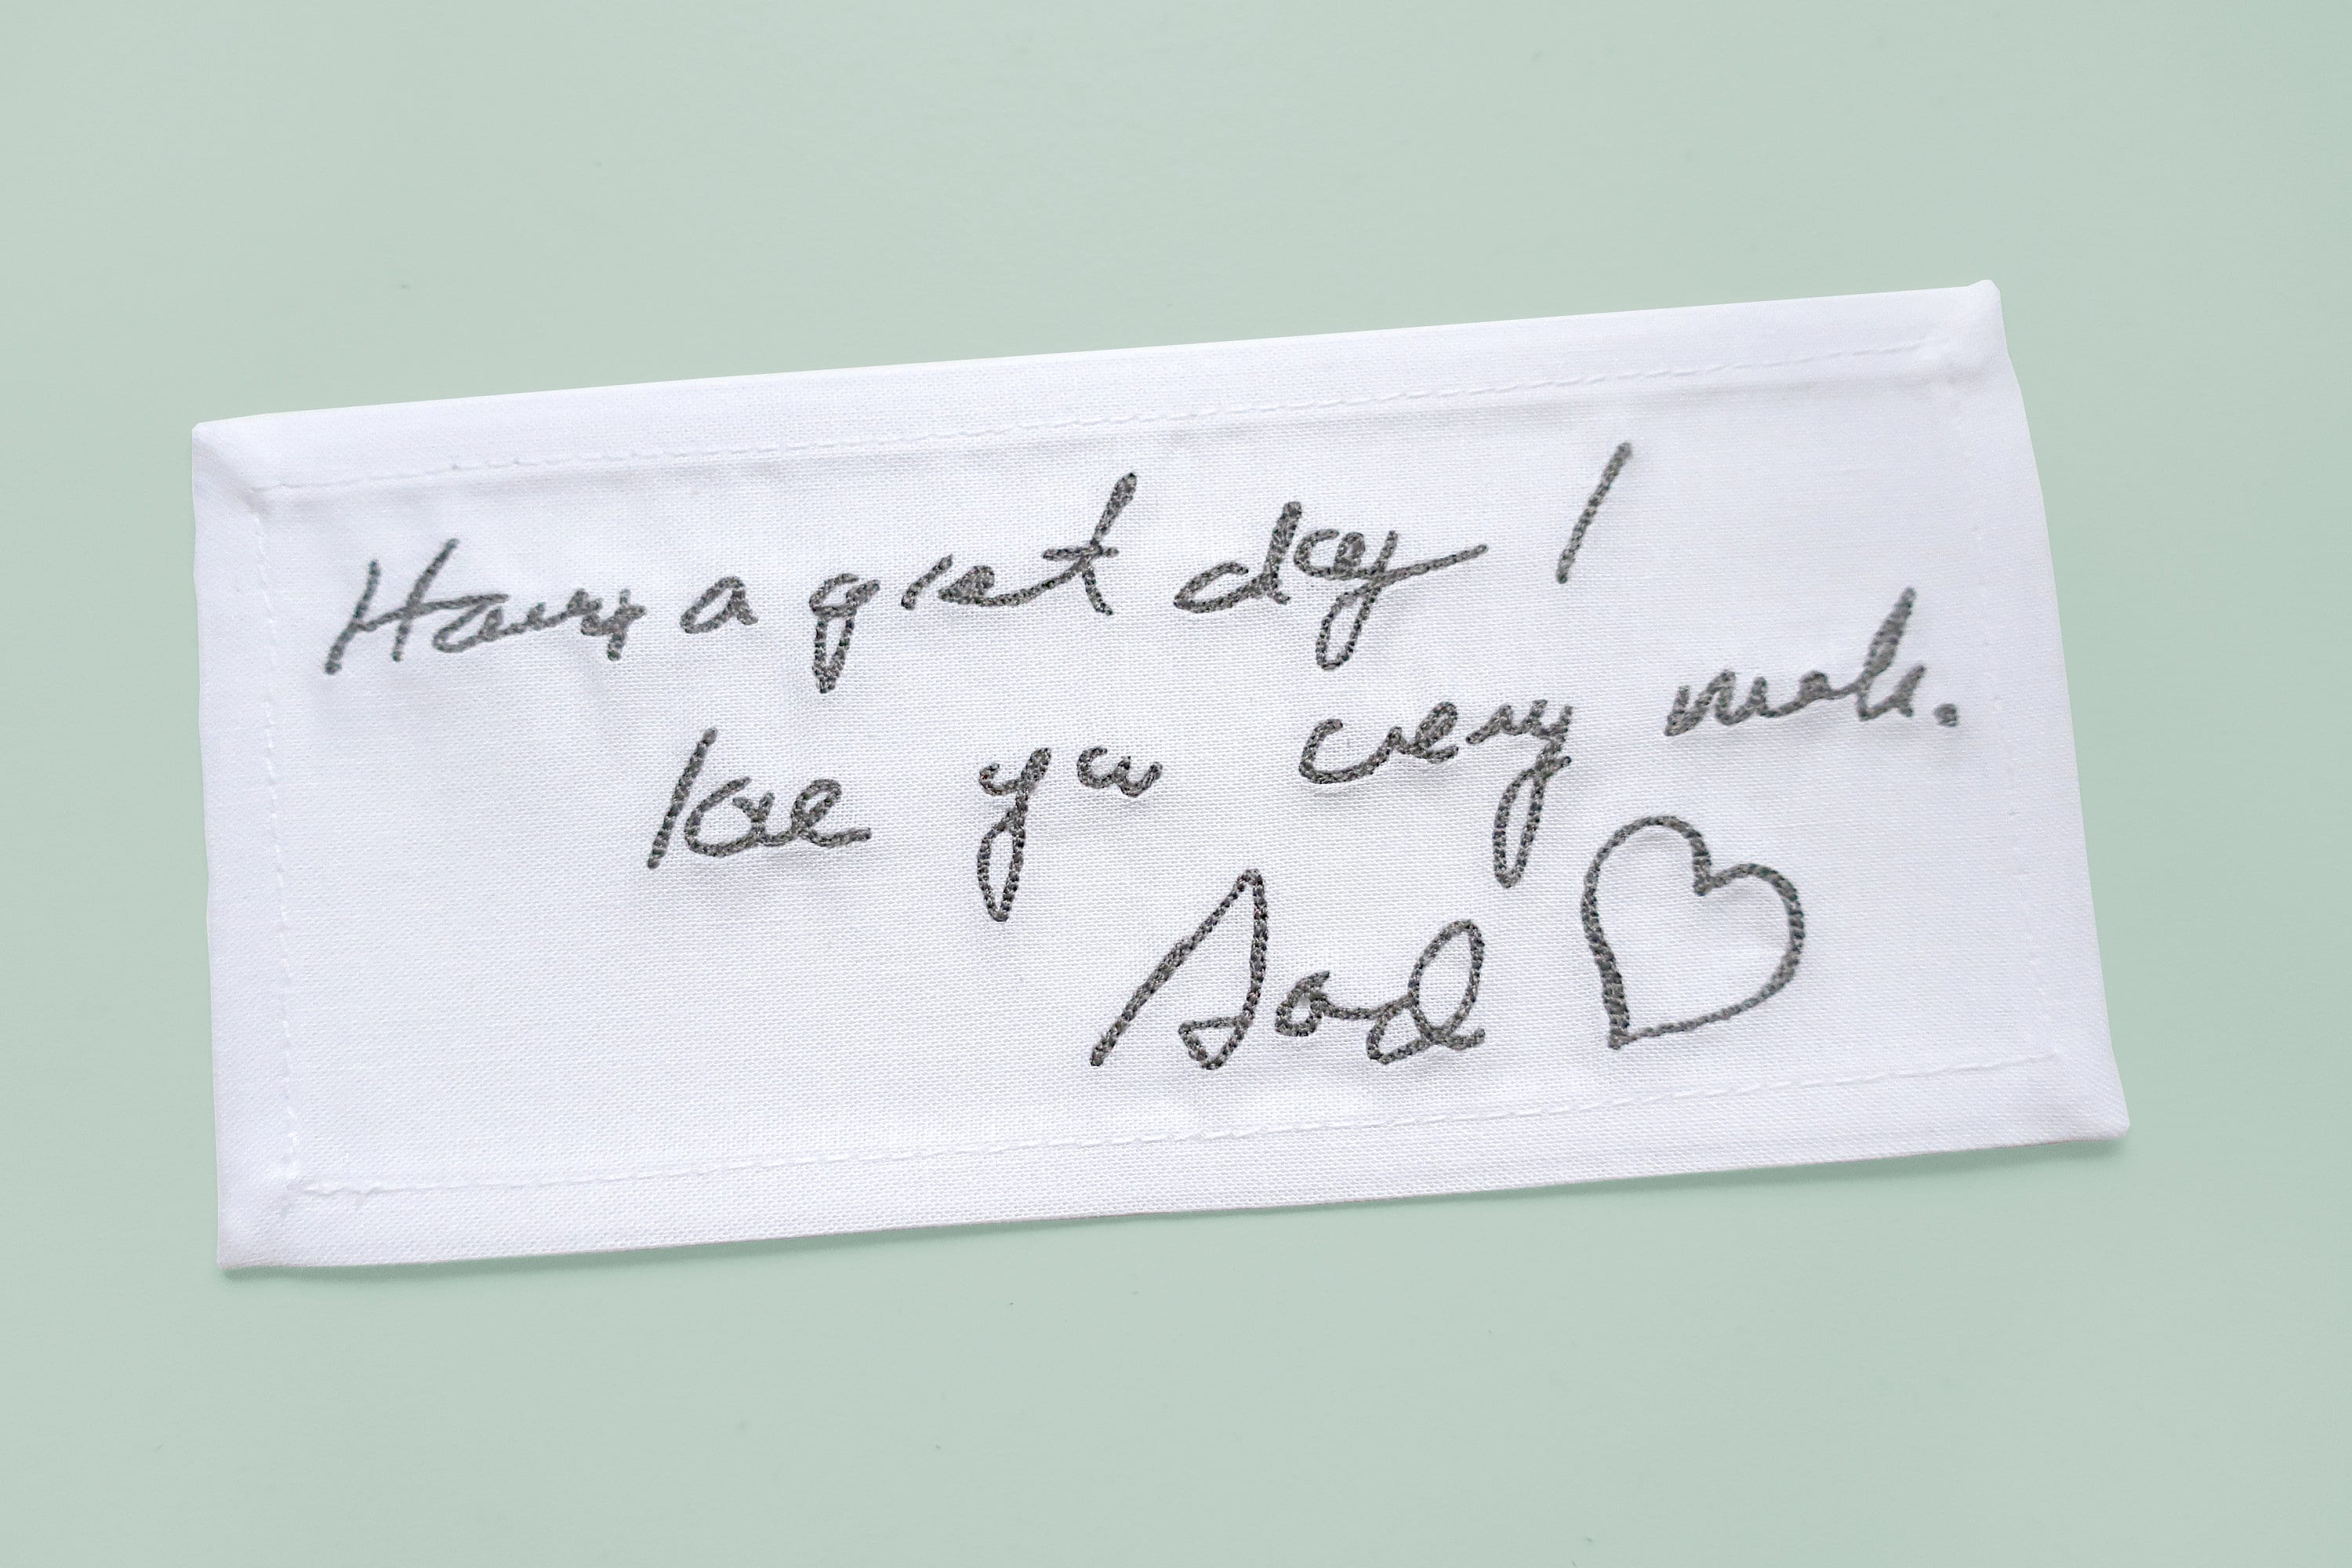 Have a great day!
love you very much.
Dad ♡